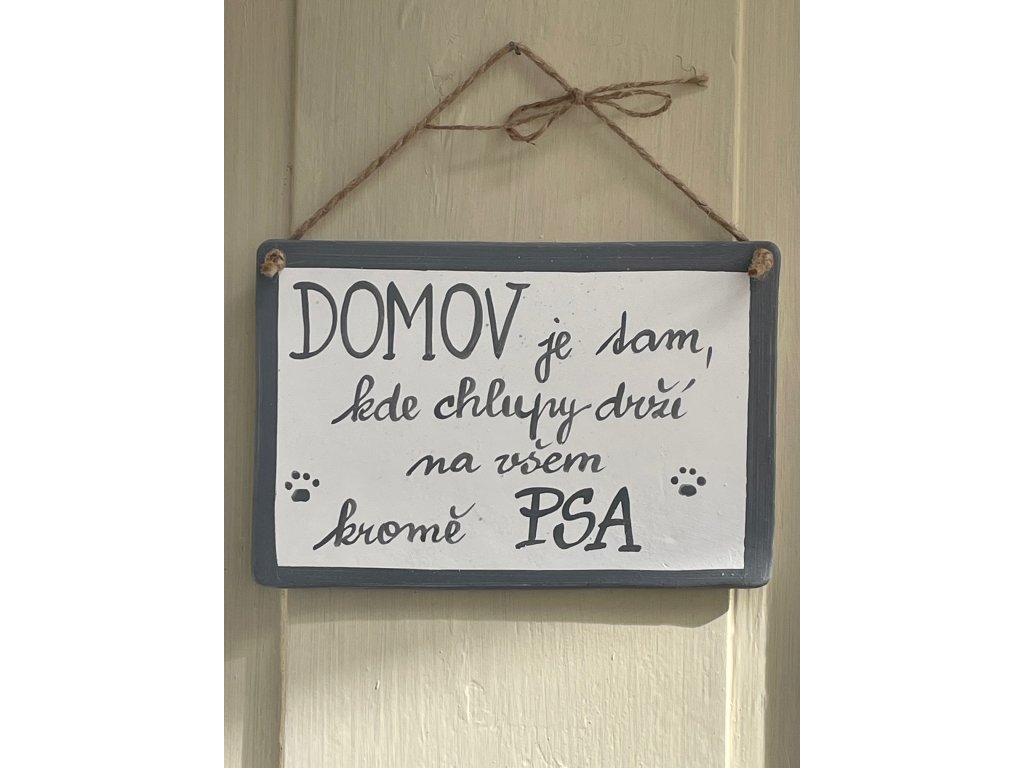 DOMOV je tam,
kde chlupy drží
na všem
kromě PSA